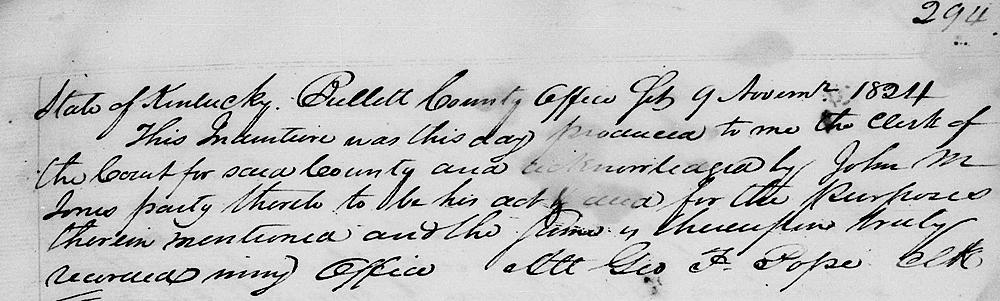 294.
State of Kentucky. Bullett County Office Sct 9 Novemr. 1824
This Indenture was this day produced to me the Clerk of
the Court for said County and acknowledged by John M
Jones party thereto to be his act & deed for the purposes
therein mentioned and the same is thereupon truly
recorded in my Office Att Geo F. Pope Clk